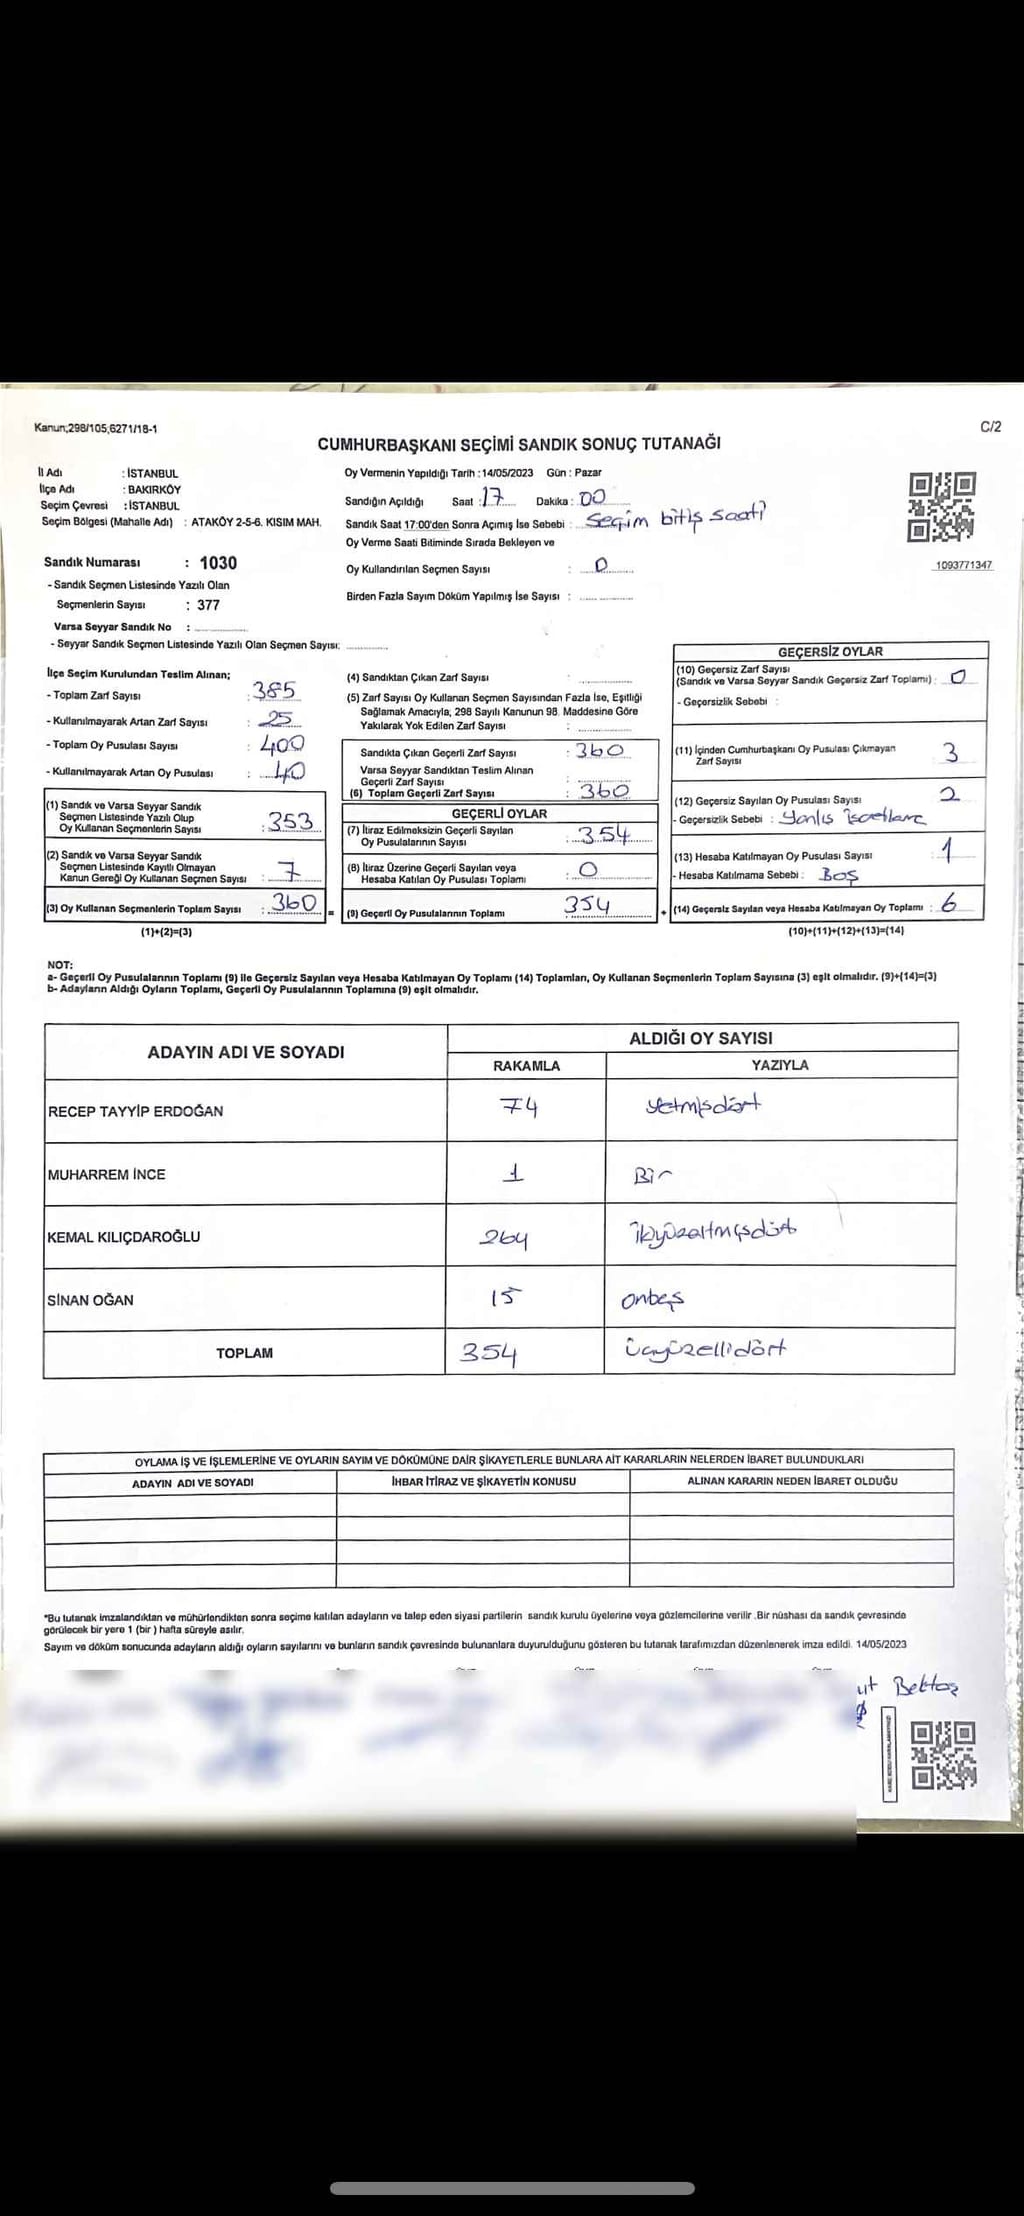 Kanun;298/105,6271/18-1
C/2
CUMHURBAŞKANI SEÇİMİ SANDIK SONUÇ TUTANAĞI
İl Adı : İSTANBUL
İlçe Adı : BAKIRKÖY
Seçim Çevresi : İSTANBUL
Seçim Bölgesi (Mahalle Adı) : ATAKÖY 2-5-6. KISIM MAH.
Sandık Numarası : 1030
- Sandık Seçmen Listesinde Yazılı Olan
Seçmenlerin Sayısı : 377
Varsa Seyyar Sandık No :
- Seyyar Sandık Seçmen Listesinde Yazılı Olan Seçmen Sayısı:
Oy Vermenin Yapıldığı Tarih : 14/05/2023 Gün : Pazar
Sandığın Açıldığı Saat : 17 Dakika : 00
Sandık Saat 17:00'den Sonra Açımış İse Sebebi : Seçim bitiş saati
Oy Verme Saati Bitiminde Sırada Bekleyen ve
Oy Kullandırılan Seçmen Sayısı : 0
Birden Fazla Sayım Döküm Yapılmış İse Sayısı :
1093771347
İlçe Seçim Kurulundan Teslim Alınan;
- Toplam Zarf Sayısı : 385
- Kullanılmayarak Artan Zarf Sayısı : 25
- Toplam Oy Pusulası Sayısı : 400
- Kullanılmayarak Artan Oy Pusulası : 40
(1) Sandık ve Varsa Seyyar Sandık
Seçmen Listesinde Yazılı Olup
Oy Kullanan Seçmenlerin Sayısı : 353
(2) Sandık ve Varsa Seyyar Sandık
Seçmen Listesinde Kayıtlı Olmayan
Kanun Gereği Oy Kullanan Seçmen Sayısı : 7
(3) Oy Kullanan Seçmenlerin Toplam Sayısı : 360 =
(1)+(2)=(3)
(4) Sandıktan Çıkan Zarf Sayısı :
(5) Zarf Sayısı Oy Kullanan Seçmen Sayısından Fazla İse, Eşitliği
Sağlamak Amacıyla, 298 Sayılı Kanunun 98. Maddesine Göre
Yakılarak Yok Edilen Zarf Sayısı :
Sandıkta Çıkan Geçerli Zarf Sayısı : 360
Varsa Seyyar Sandıktan Teslim Alınan
Geçerli Zarf Sayısı :
(6) Toplam Geçerli Zarf Sayısı : 360
GEÇERLİ OYLAR
(7) İtiraz Edilmeksizin Geçerli Sayılan
Oy Pusulalarının Sayısı : 354
(8) İtiraz Üzerine Geçerli Sayılan veya
Hesaba Katılan Oy Pusulası Toplamı : 0
(9) Geçerli Oy Pusulalarının Toplamı 354 +
GEÇERSİZ OYLAR
(10) Geçersiz Zarf Sayısı
(Sandık ve Varsa Seyyar Sandık Geçersiz Zarf Toplamı) : 0
- Geçersizlik Sebebi :
(11) İçinden Cumhurbaşkanı Oy Pusulası Çıkmayan
Zarf Sayısı 3
(12) Geçersiz Sayılan Oy Pusulası Sayısı 2
- Geçersizlik Sebebi : Yanlış
(13) Hesaba Katılmayan Oy Pusulası Sayısı 1
- Hesaba Katılmama Sebebi : Boş
(14) Geçersiz Sayılan veya Hesaba Katılmayan Oy Toplamı : 6
(10)+(11)+(12)+(13)=(14)
NOT:
a- Geçerli Oy Pusulalarının Toplamı (9) ile Geçersiz Sayılan veya Hesaba Katılmayan Oy Toplamı (14) Toplamları, Oy Kullanan Seçmenlerin Toplam Sayısına (3) eşit olmalıdır. (9)+(14)=(3)
b- Adayların Aldığı Oyların Toplamı, Geçerli Oy Pusulalarının Toplamına (9) eşit olmalıdır.
ADAYIN ADI VE SOYADI
ALDIĞI OY SAYISI
RAKAMLA YAZIYLA
RECEP TAYYİP ERDOĞAN 74 Yetmişdört
MUHARREM İNCE 1 Bir
KEMAL KILIÇDAROĞLU 264 İkiyüzaltmışdört
SİNAN OĞAN 15 Onbeş
TOPLAM 354 Üçyüzellidört
OYLAMA İŞ VE İŞLEMLERİNE VE OYLARIN SAYIM VE DÖKÜMÜNE DAİR ŞİKAYETLERLE BUNLARA AİT KARARLARIN NELERDEN İBARET BULUNDUKLARI
ADAYIN ADI VE SOYADI İHBAR İTİRAZ VE ŞİKAYETİN KONUSU ALINAN KARARIN NEDEN İBARET OLDUĞU
*Bu tutanak imzalandıktan ve mühürlendikten sonra seçime katılan adayların ve talep eden siyasi partilerin sandık kurulu üyelerine veya gözlemcilerine verilir .Bir nüshası da sandık çevresinde
görülecek bir yere 1 (bir ) hafta süreyle asılır.
Sayım ve döküm sonucunda adayların aldığı oyların sayılarını ve bunların sandık çevresinde bulunanlara duyurulduğunu gösteren bu tutanak tarafımızdan düzenlenerek imza edildi. 14/05/2023
ut Bektaş